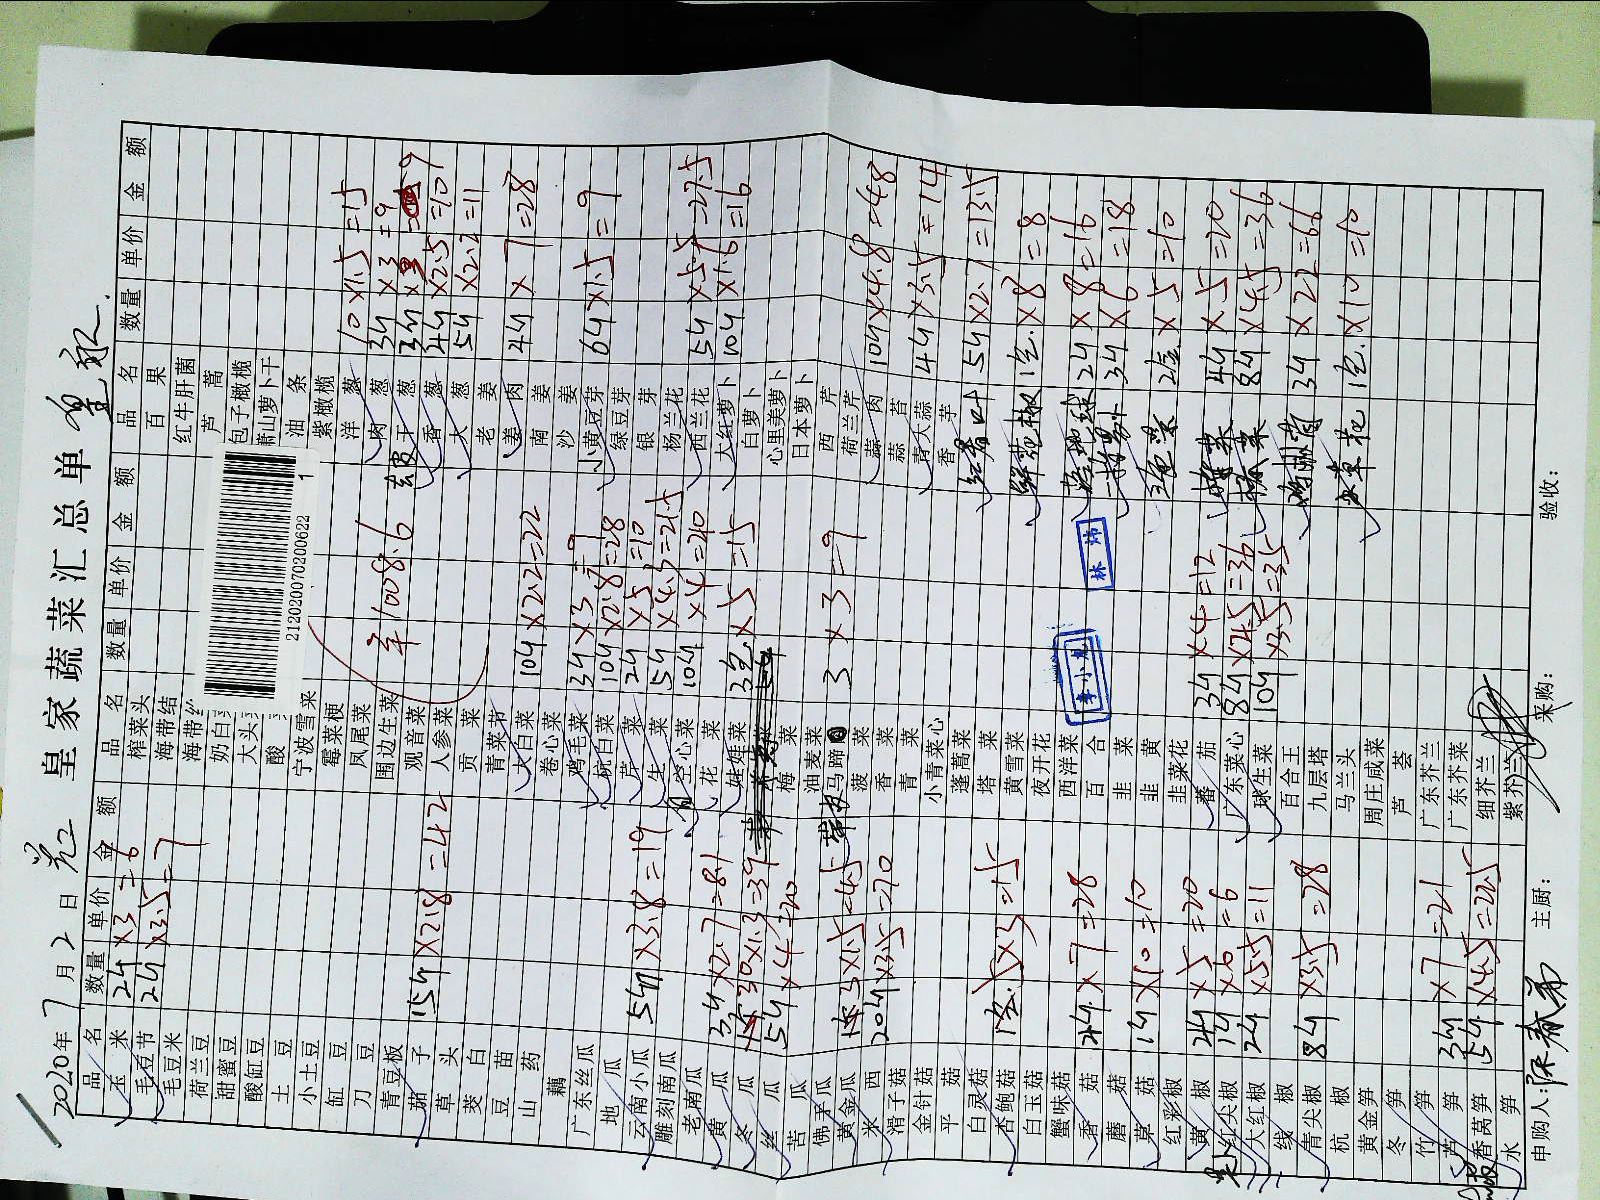 皇家蔬菜汇总单
2020年7月2日
品名 数量 单价 金额
玉米 2斤 ×3 =6
毛豆节 2斤 ×3.5 =7
毛豆米
荷兰豆
甜蜜豆
酸缸豆
土豆
小土豆
缸豆
刀豆
青豆板
茄子 15斤 ×2.8 =42
草头
茭白
豆苗
山药
藕
广东丝瓜
地瓜
云南小瓜 5斤 ×3.8 =19
雕刻南瓜
老南瓜
黄瓜 3斤 ×2.7 =8.1
冬瓜 30 ×1.3 =39
丝瓜 5斤 ×4 =20
苦瓜
佛手瓜
黄金瓜 3 ×1.5 =4.5
米西 20斤 ×3.5 =70
滑子菇
金针菇
平菇
白灵菇
杏鲍菇 5×3 =15
白玉菇
蟹味菇
香菇 4斤 ×7 =28
蘑菇
草菇 1斤 ×10 =10
红彩椒
黄椒 4斤 ×5 =20
红尖椒 1斤 ×6 =6
大红椒 2斤 ×5.5 =11
线椒
青尖椒 8斤 ×3.5 =28
杭椒
黄金笋
冬笋
竹笋
芦笋 3斤 ×7 =21
香莴笋 5斤 ×4.5 =22.5
水笋
品名 数量 单价 金额
榨菜头
海带结
海带
奶白
大头
酸
宁波雪菜
霉菜梗
凤尾菜
围边生菜
观音菜
人参菜
贡菜
青菜节
大白菜 10斤 ×2.2 =22
卷心菜
鸡毛菜 3斤 ×3 =9
杭白菜 10斤 ×2.8 =28
芹菜 2斤 ×5 =10
生菜 5斤 ×4.3 =21.5
空心菜 10斤 ×4 =40
花菜
娃娃菜 3包 ×5 =15
梅菜
油麦菜
马蹄 3 ×3 =9
菠菜
香菜
青菜
小青菜心
蓬蒿菜
塔菜
黄雪菜
夜开花
西洋菜
百合
韭菜
韭黄
韭菜花
蕃茄 3斤 ×4 =12
广东菜心 8斤 ×4.5 =36
球生菜 10斤 ×3.5 =35
百合王
九层塔
马兰头
周庄咸菜
芦荟
广东芥兰
广东芥菜
细芥兰
紫芥兰
1008.6
212020070200622 1
品名 数量 单价 金额
百果
红牛肝菌
芦蒿
包子橄榄
萧山萝卜干
油条
紫橄榄
洋葱 10 ×1.5 =15
肉葱 3斤 ×3 =9
干葱 3斤 =9
香葱 4斤 ×2.5 =10
大葱 5斤 ×2.2 =11
老姜
姜肉 4斤 ×7 =28
南姜
沙姜
小黄豆芽 6斤 ×1.5 =9
绿豆芽
银芽
杨兰花
西兰花 5斤 ×5.5 =27.5
大红萝卜 10斤 ×1.6 =16
白萝卜
心里美萝卜
日本萝卜
西芹
荷兰芹
蒜肉 10斤 ×4.8 =48
蒜苔
青大蒜 4斤 ×3.5 =14
香芋
红薯叶 5斤 ×2.7 =13.5
鲜花椒 1包 ×8 =8
2斤 ×8 =16
3斤 ×6 =18
2盒 ×5 =10
4斤 ×5 =20
8斤 ×4.5 =36
3斤 ×22 =66
草花 1包 ×10 =10
林炜
李小龙
申购人：陈春弟
主厨：
采购：
验收：